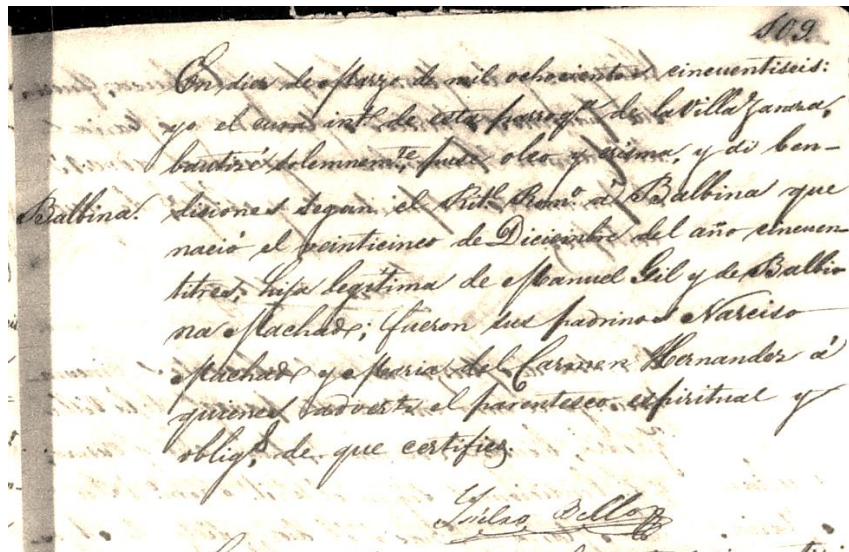 109.
En dia de Marzo de mil ochocientos cincuentiseis:
yo el cura int.º de esta parroq.ª de la Villa Zaraza,
bautizé solemnem.te, puse oleo y crisma, y di ben-
Balbina. disiones segun el Rit.l Rom.º á Balbina que
nació el veinticinco de Diciembre del año cincuen-
titres; hija legítima de Manuel Gil y de Balbi-
na Machado; fueron sus padrinos Narciso
Machado y Maria del Carmen Hernandez á
quienes advertí el parentesco espiritual y
oblig.s de que certifico.
Bello